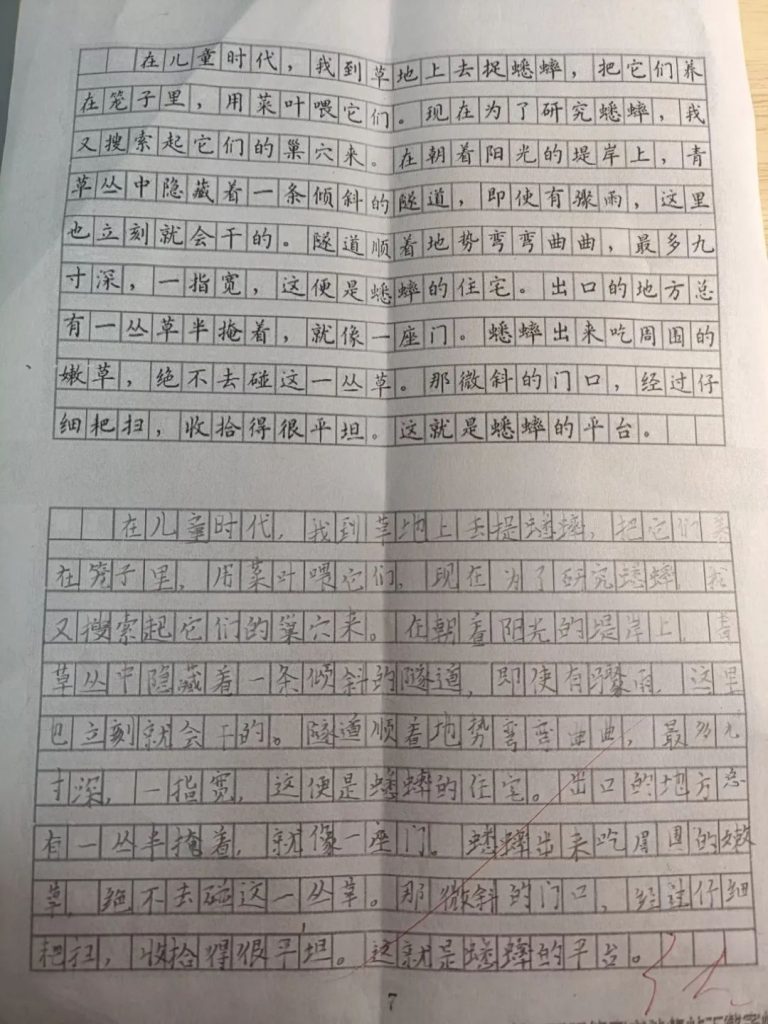 在儿童时代，我到草地上去捉蟋蟀，把它们养
在笼子里，用菜叶喂它们。现在为了研究蟋蟀，我
又搜索起它们的巢穴来。在朝着阳光的堤岸上，青
草丛中隐藏着一条倾斜的隧道，即使有骤雨，这里
也立刻就会干的。隧道顺着地势弯弯曲曲，最多九
寸深，一指宽，这便是蟋蟀的住宅。出口的地方总
有一丛草半掩着，就像一座门。蟋蟀出来吃周围的
嫩草，绝不去碰这一丛草。那微斜的门口，经过仔
细耙扫，收拾得很平坦。这就是蟋蟀的平台。
在儿童时代，我到草地上去捉蟋蟀，把它们养
在笼子里，用菜叶喂它们，现在为了研究蟋蟀，我
又搜索起它们的巢穴来。在朝着阳光的堤岸上，青
草丛中隐藏着一条倾斜的隧道，即使有骤雨，这里
也立刻就会干的。隧道顺着地势弯弯曲曲，最多九
寸深，一指宽，这便是蟋蟀的住宅。出口的地方总
有一丛半掩着，就像一座门。蟋蟀出来吃周围的嫩
草，绝不去碰这一丛草。那微斜的门口，经过仔细
耙扫，收拾得很平坦。这就是蟋蟀的平台。
7